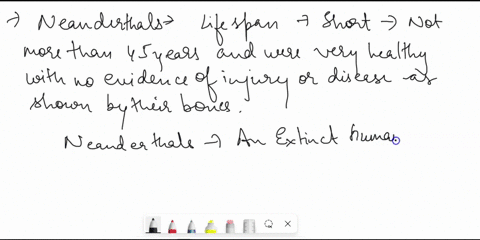 → Neanderthals → Life span → Short → Not
more than 45 years and were very healthy
with no evidence of injury or disease as
shown by their bones.
Neanderthals → An Extinct human